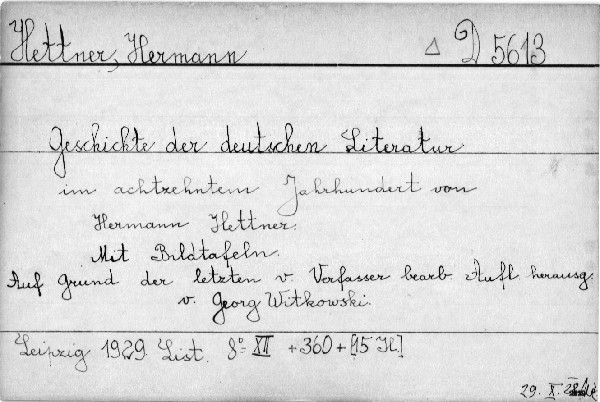 Hettner, Hermann △ D 5613
Geschichte der deutschen Literatur
im achtzehntem Jahrhundert von
Hermann Hettner.
Mit Bildtafeln.
Auf Grund der letzten v. Verfasser bearb. Aufl. herausg.
v. Georg Witkowski.
Leipzig 1929. List. 8° XII +360+[15 Jl.]
29. X.